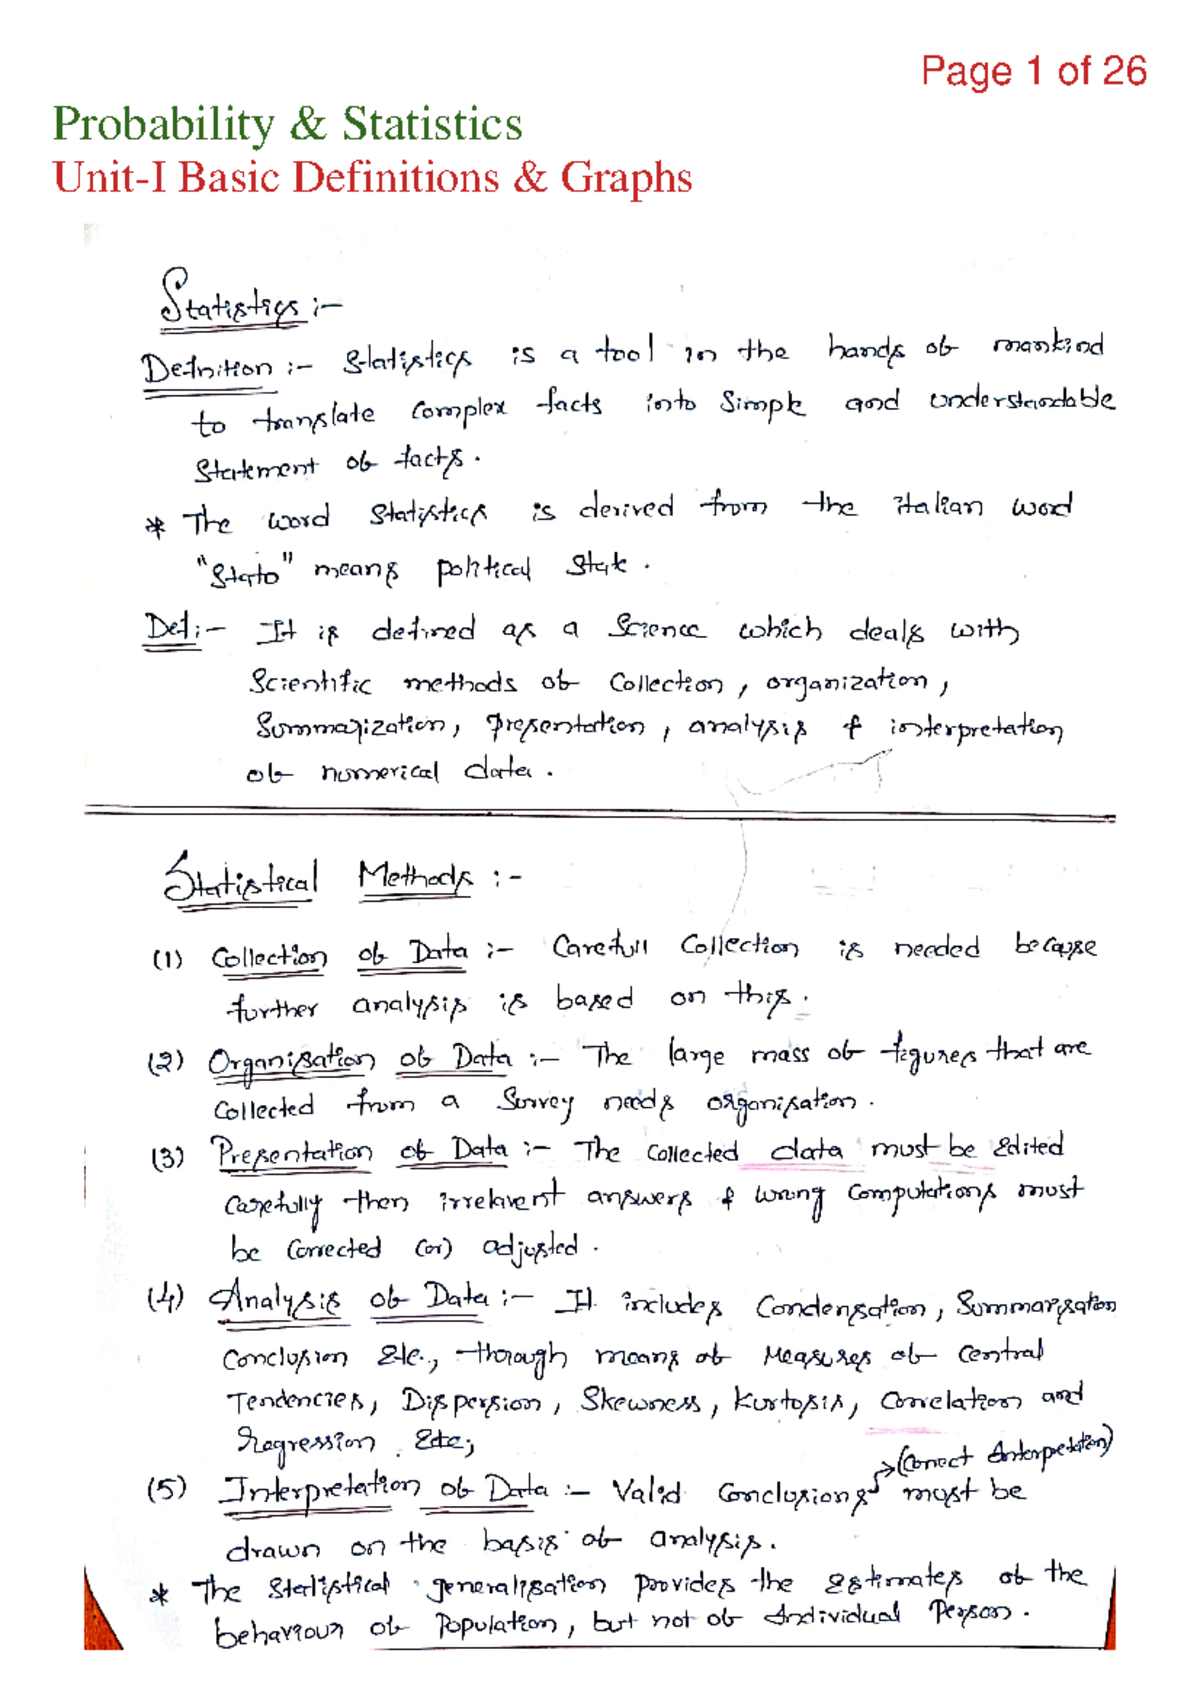 Page 1 of 26
Probability & Statistics
Unit-I Basic Definitions & Graphs
Statistics :-
Definition :- Statistics is a tool in the hands of mankind
to translate complex facts into Simple and understandable
Statement of facts.
* The word Statistics is derived from the italian word
"Stato" means political State.
Def:- It is defined as a Science which deals with
Scientific methods of Collection, organization,
Summarization, presentation, analysis & interpretation
of numerical data.
Statistical Methods :-
(1) Collection of Data :- Carefull Collection is needed because
further analysis is based on this.
(2) Organisation of Data :- The large mass of figures that are
Collected from a Survey needs organisation.
(3) Presentation of Data :- The Collected data must be Edited
Carefully then irrelavent answers & wrong Computations must
be Corrected (or) adjusted.
(4) Analysis of Data :- It includes Condensation, Summarisation
Conclusion Etc., thorough means of Measures of Central
Tendencies, Dispersion, Skewness, Kurtosis, Correlation and
Regression Etc;
→(Correct Interpretation)
(5) Interpretation of Data :- Valid Conclusions must be
drawn on the basis of analysis.
* The Statistical generalisation provides the Estimates of the
behaviour of Population, but not of Individual Person.